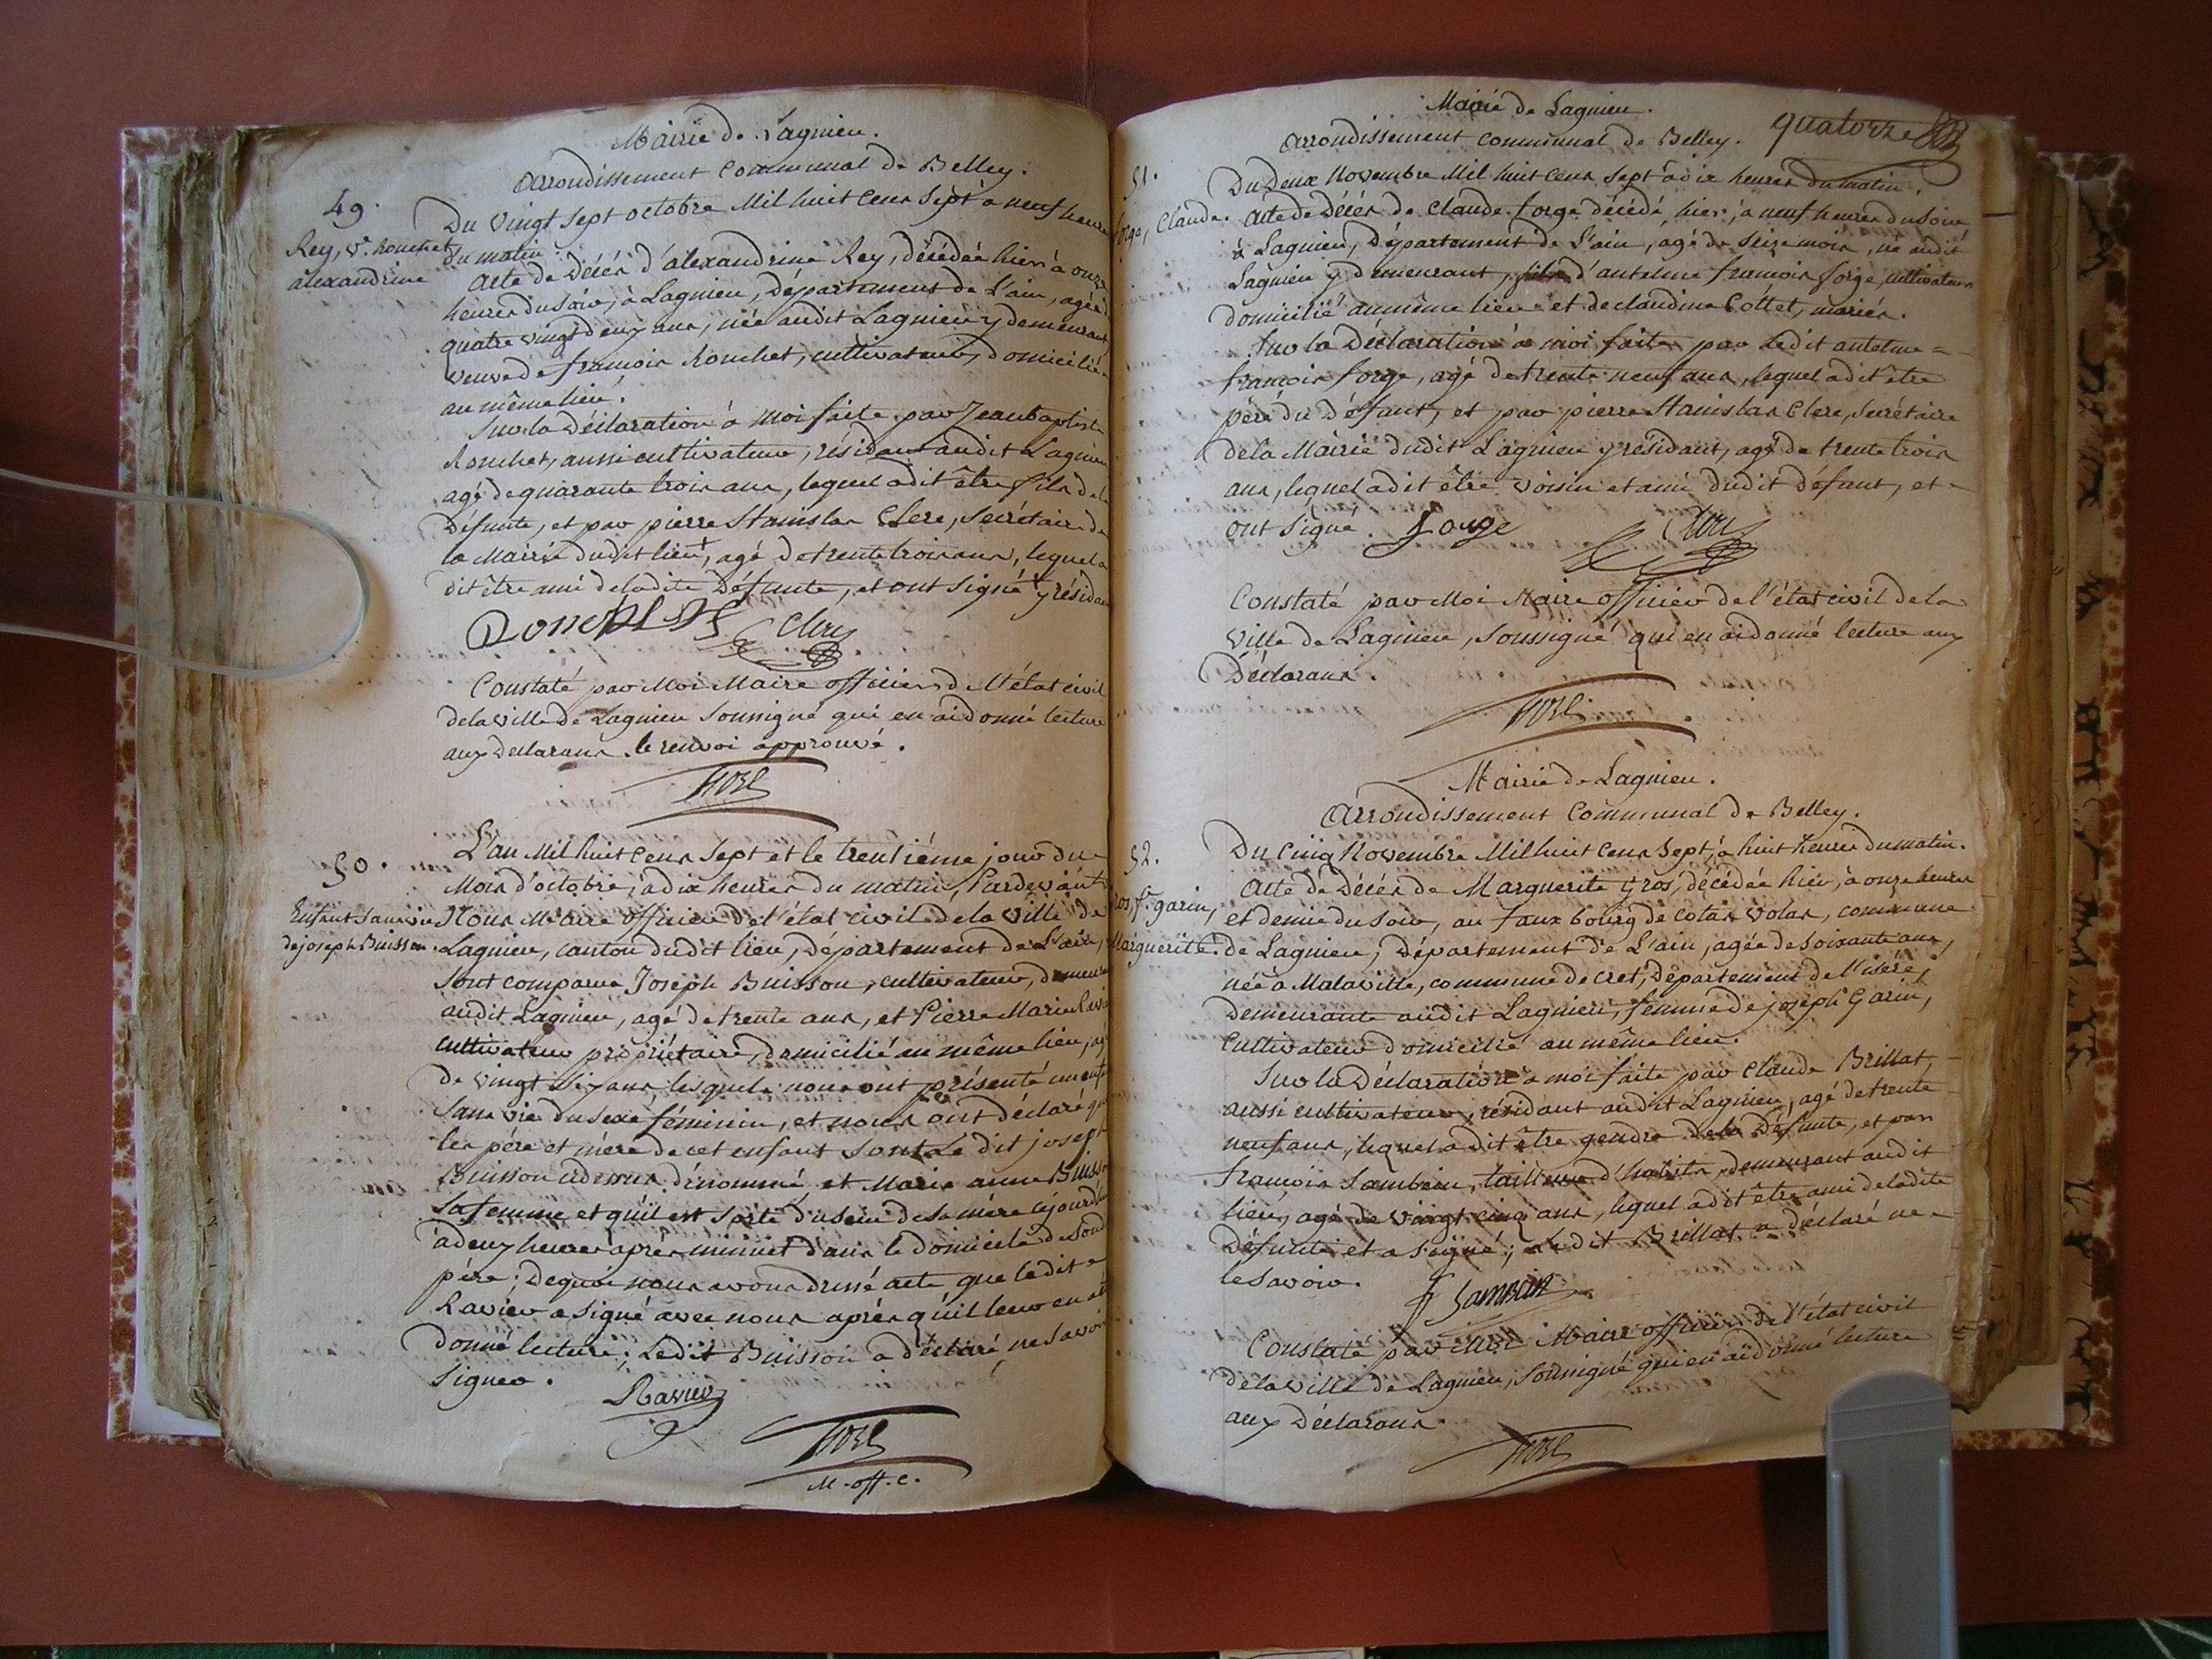 Mairie de Lagnieu.
Arrondissement Communal de Belley.
49.
Rey, Ve. Ronchet
alexandrine
Du vingt sept octobre Mil huit Cens Sept à neuf heures
du matin
Acte de Décès d'alexandrine Rey, décédée hier à onze
heures du soir, à Lagnieu, Département de l'ain, agée de
quatre vingt deux ans, née audit Lagnieu y demeurant,
veuve de françois Ronchet, cultivateur, domicilié
au même lieu.
Sur la Déclaration à moi faite par Jean baptiste
Ronchet, aussi cultivateur, résidant audit Lagnieu
agé de quarante trois ans, lequel a dit être fils de la
Défunte, et par pierre Stanislas Clerc, Secrétaire de
la Mairie dudit lieu+, agé de trente trois ans, lequel a
dit être ami de ladite Défunte, et ont signé + y résidant
Clerc
Constaté par Moi Maire officier de l'état civil
de la ville de Lagnieu soussigné qui en ai donné lecture
aux declarans. le renvoi approuvé.
50.
Enfant sans vie
de joseph Buisson.
L'an Mil huit Cens Sept et le trentiéme jour du
Mois d'octobre, à dix heures du matin, Pardevant
Nous Maire officier de l'état civil de la ville de
Lagnieu, canton dudit lieu, Département de L'ain,
Sont comparus Joseph Buisson, cultivateur, demeurant
audit Lagnieu, agé de trente ans, et Pierre Marie Ravier
cultivateur propriétaire, domicilié au même lieu, agé
de vingt six ans, lesquels nous ont présenté un enfant
sans vie du sexe féminin, et nous ont déclaré que
les père et mère de cet enfant sont Le dit joseph
Buisson cidessus dénommé et Marie anne Buisson
sa femme et qu'il est sorti du sein de sa mère cejourd'hui
à deux heures après minuit dans le domicile de son d.
père; Dequoi nous avons dressé acte que ledit
Ravier a signé avec nous après qu'il leur en a été
donné lecture; Ledit Buisson a déclaré ne savoir
signer.
Ravier
M. off. c.
Mairie de Lagnieu.
Arrondissement communal de Belley.
quatorze
51.
forge, Claude.
Du Deux Novembre Mil huit Cens Sept à dix heures du matin.
Acte de Décès de Claude forge décédé hier, à neuf heures du soir
à Lagnieu, Département de L'ain, agé de seize mois, né audit
Lagnieu y demeurant, fils d'antelme françois forge, cultivateur
domicilié au même lieu et de claudine Cottet, mariés.
Sur la Déclaration à moi faite par Ledit antelme =
françois forge, agé de trente neuf ans, lequel a dit être
père du défunt, et par pierre Stanislas Clerc, Secrétaire
de la Mairie dudit Lagnieu y résidant, agé de trente trois
ans, lequel a dit être voisin et ami dudit défunt, et
ont signé. forge Clerc
Constaté par Moi Maire officier de l'état civil de la
ville de Lagnieu, soussigné qui en ai donné lecture aux
Déclarans.
Mairie de Lagnieu.
Arrondissement Communal de Belley.
52.
Gros, fe. garin,
Marguerite.
Du Cinq Novembre Mil huit Cens Sept, à huit heures du matin.
Acte de Décès de Marguerite Gros, décédée hier, à onze heures
et demie du soir, au faux bourg de cotas volar, commune
de Lagnieu, Département de L'ain, agée de soixante ans,
née à Malaville, commune de cret, Département de l'isére,
demeurante audit Lagnieu, femme de joseph Garin,
Cultivateur domicilié au même lieu.
Sur la Déclaration à moi faite par claude Brillat,
aussi cultivateur, résidant audit Lagnieu, agé de trente
neuf ans, lequel a dit être gendre de la Défunte, et par
François Sambein, tailleur d'habits, demeurant audit
lieu, agé de vingt cinq ans, lequel a dit être ami de ladite
Défunte et a signé; Ledit Brillat a déclaré ne
le savoir.
Constaté par Moi Maire officier de l'état civil
de la ville de Lagnieu, soussigné qui en ai donné lecture
aux Déclarans.